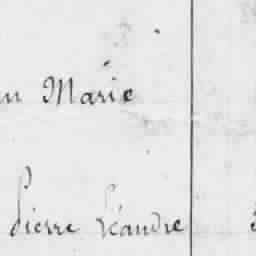 Marie
Pierre Léandre